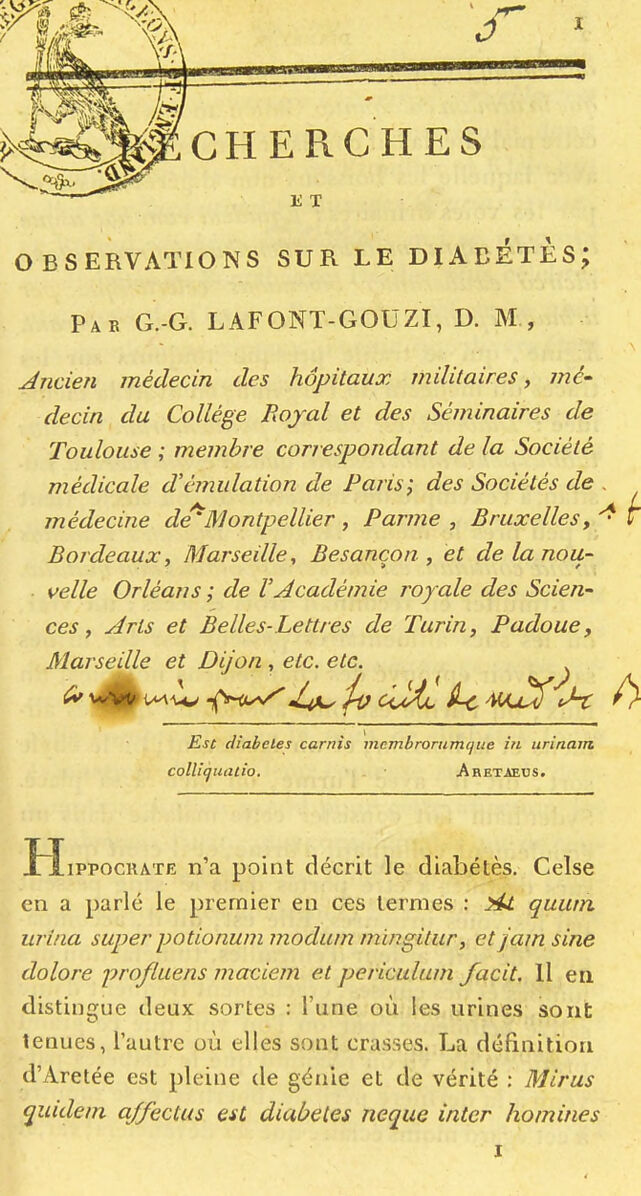 5
1
RECHERCHES
ET
OBSERVATIONS SUR LE DIABÉTÈS;
PAR G.-G. LAFONT-GOUZI, D. M.,
Ancien médecin des hôpitaux militaires, mé-
decin du Collége Royal et des Séminaires de
Toulouse ; membre correspondant de la Société
médicale d'émulation de Paris; des Sociétés de
médecine de Montpellier, Parme, Bruxelles,
Bordeaux, Marseille, Besançon, et de la nou-
velle Orléans; de l'Académie royale des Scien-
ces, Arts et Belles-Lettres de Turin, Padoue,
Marseille et Dijon, etc. etc.
par la société de
Est diabetes carnis membrorumque in urinam
colliquatio. ARETAEUS.
HIPPOCRATE n'a point décrit le diabétès. Celse
en a parlé le premier en ces termes : At quum
urina super potionum modum mingitur, et jam sine
dolore profluens maciem et periculum facit. Il en
distingue deux sortes : l'une où les urines sont
tenues, l'autre où elles sont crasses. La définition
d'Aretée est pleine de génie et de vérité : Mirus
quidem affectus est diabetes neque inter homines
1